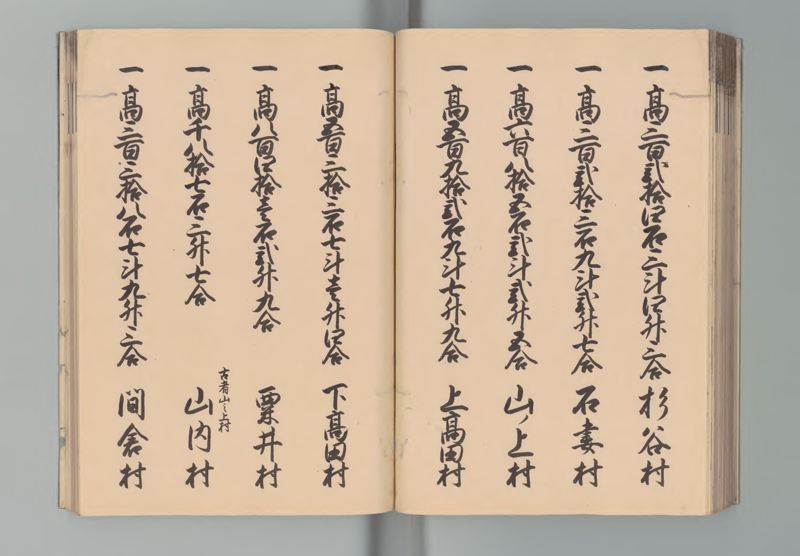 一高三百弐拾四石三斗四升三合 杉谷村
一高二百弐拾三石九斗弐升七合 石妻村
一高六百八拾五石弐斗弐升五合 山ノ上村
一高五百九拾弐石九斗七升九合 上高田村
一高五百三拾三石七斗壱升四合 下高田村
一高八百四拾壱石弐升九合 粟井村
一高千八拾七石三升七合 古者山之上村 山内村
一高三百三拾八石七斗九升三合 間倉村